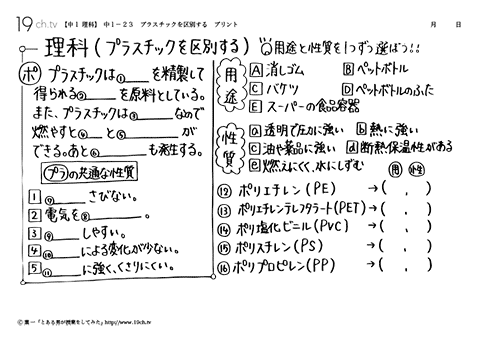 19ch.tv 【中1 理科】 中1-23 プラスチックを区別する プリント 月 日
理科(プラスチックを区別する)
用途と性質を1つずつ選ぼう!!
ポ プラスチックは①___を精製して
得られる②___を原料としている。
また、プラスチックは③___なので
燃やすと④___と⑤___が
できる。あと⑥___も発生する。
プラの共通な性質
1 ⑦___さびない。
2 電気を⑧___。
3 ⑨___しやすい。
4 ⑩___による変化が少ない。
5 ⑪___に強く、くさりにくい。
用途
A 消しゴム B ペットボトル
C バケツ D ペットボトルのふた
E スーパーの食品容器
性質
a 透明で圧力に強い b 熱に強い
c 油や薬品に強い d 断熱保温性がある
e 燃えにくく、水にしずむ
用 性
⑫ ポリエチレン(PE) →( , )
⑬ ポリエチレンテレフタラート(PET)→( , )
⑭ ポリ塩化ビニル(PVC) →( , )
⑮ ポリスチレン(PS) →( , )
⑯ ポリプロピレン(PP) →( , )
© 葉一「とある男が授業をしてみた」http://www.19ch.tv